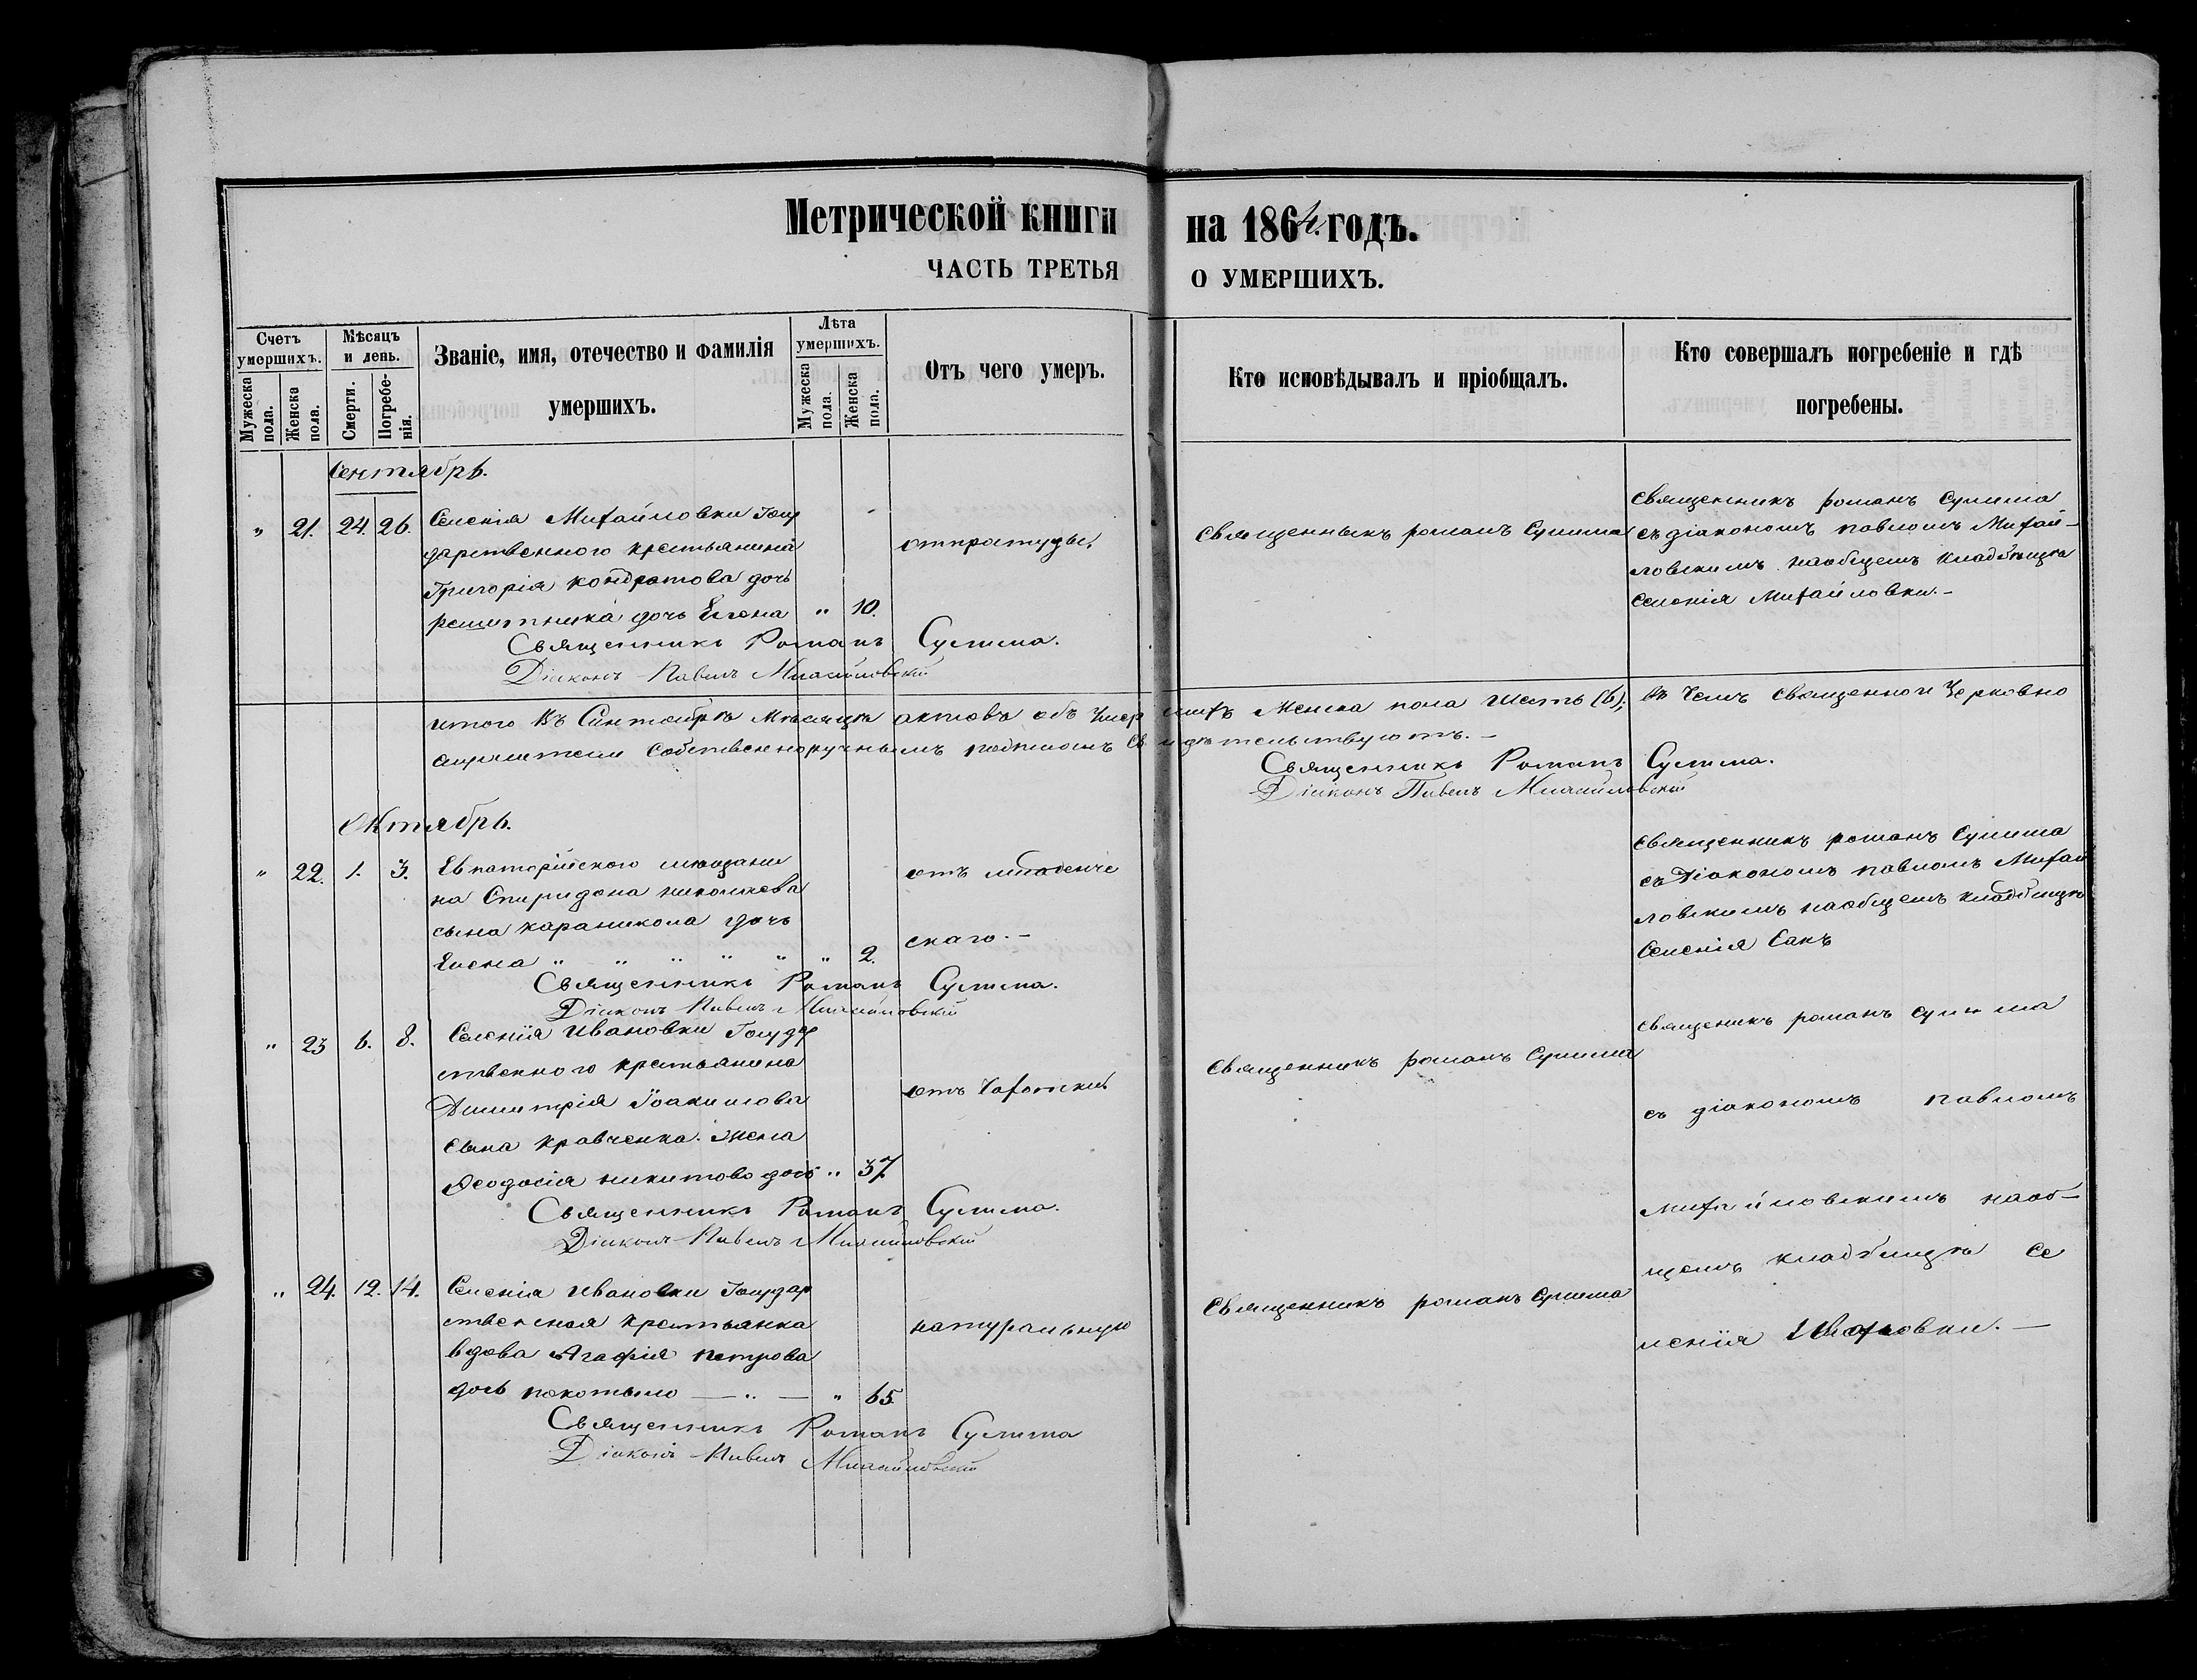 Метрической книги на 1864 годъ.
ЧАСТЬ ТРЕТЬЯ О УМЕРШИХЪ.
Счетъ умершихъ.
Мужеска пола.
Женска пола.
Мѣсяцъ и день.
Смерти.
Погребенія.
Званіе, имя, отечество и фамилія
умершихъ.
Лѣта умершихъ.
Мужеска пола.
Женска пола.
Отъ чего умеръ.
Кто исповѣдывалъ и пріобщалъ.
Кто совершалъ погребеніе и гдѣ
погребены.
Сентябрь.
" 21. 24. 26. Селенія Михайловки Госу
дарственного крестьянина
Григорія кондратова дочь
решитника дочь Елена " 10.
отпростуды,
Священникъ романъ Сулима
Священникъ романъ Сулима
съ діакономъ павломъ Михай-
ловскимъ наобщемъ кладбищѣ
Селенія Михайловки.-
Священникъ Романъ Сулима.
Діаконъ Павелъ Михайловскій
итого Въ Синтебрѣ Мѣсяцѣ актовъ объ Умершихъ Женска пола шесть (6), въ чемъ Священно и Церковно
служители собственноручнымъ подписомъ свидѣтельствуютъ.-
Священникъ Романъ Сулима.
Діаконъ Павелъ Михайловскій
Октябрь.
" 22. 1. 3. Евпаторійского мющани
на Спиридона николаева
сына караникола дочь
Елена " " " " " " 2.
отъ младенче
скаго.-
Священникъ романъ Сулима
съ Діакономъ павломъ Михай
ловскимъ наобщемъ кладбищѣ
Селенія Сакъ
Священникъ Романъ Сулима.
Діаконъ Павелъ Михайловскій
" 23 6. 8. Селенія Ивановки Государ
ственного крестьянина
Димитрія Іоакимова
сына кравченка. жена
Ѳеодосія никитова дочь " 37
отъ Чахотки
Священникъ романъ Сулима
Священикъ романъ Сулима
съ діакономъ павломъ
Михайловскимъ наоб-
щемъ кладбищѣ Се
ленія Ивановки.-
Священникъ Романъ Сулима.
Діаконъ Павелъ Михайловскій
" 24. 12. 14. Селенія Ивановки Государ
ственная крестьянка
вдова Агафія петрова
дочь покотыло — " — " 65.
натуральную
Священникъ романъ Сулима
Священникъ Романъ Сулима
Діаконъ Павелъ Михайловскій